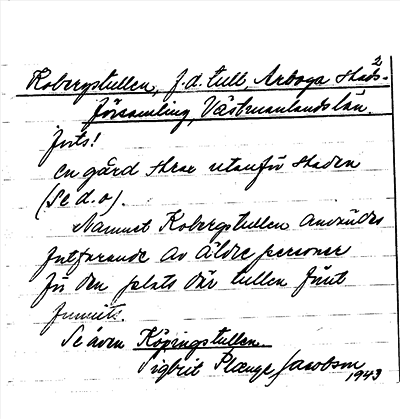 2
Kobergstullen, f.d. tull, Arboga Stads-
församling, Västmanlands län.
förts!
en gård strax utanför staden
(Se d.o).
Namnet Kobergstullen användes
fortfarande av äldre personer
för den plats där tullen förut
funnits.
Se även Köpingstullen
Sigbrit Plænge Jacobson
1943